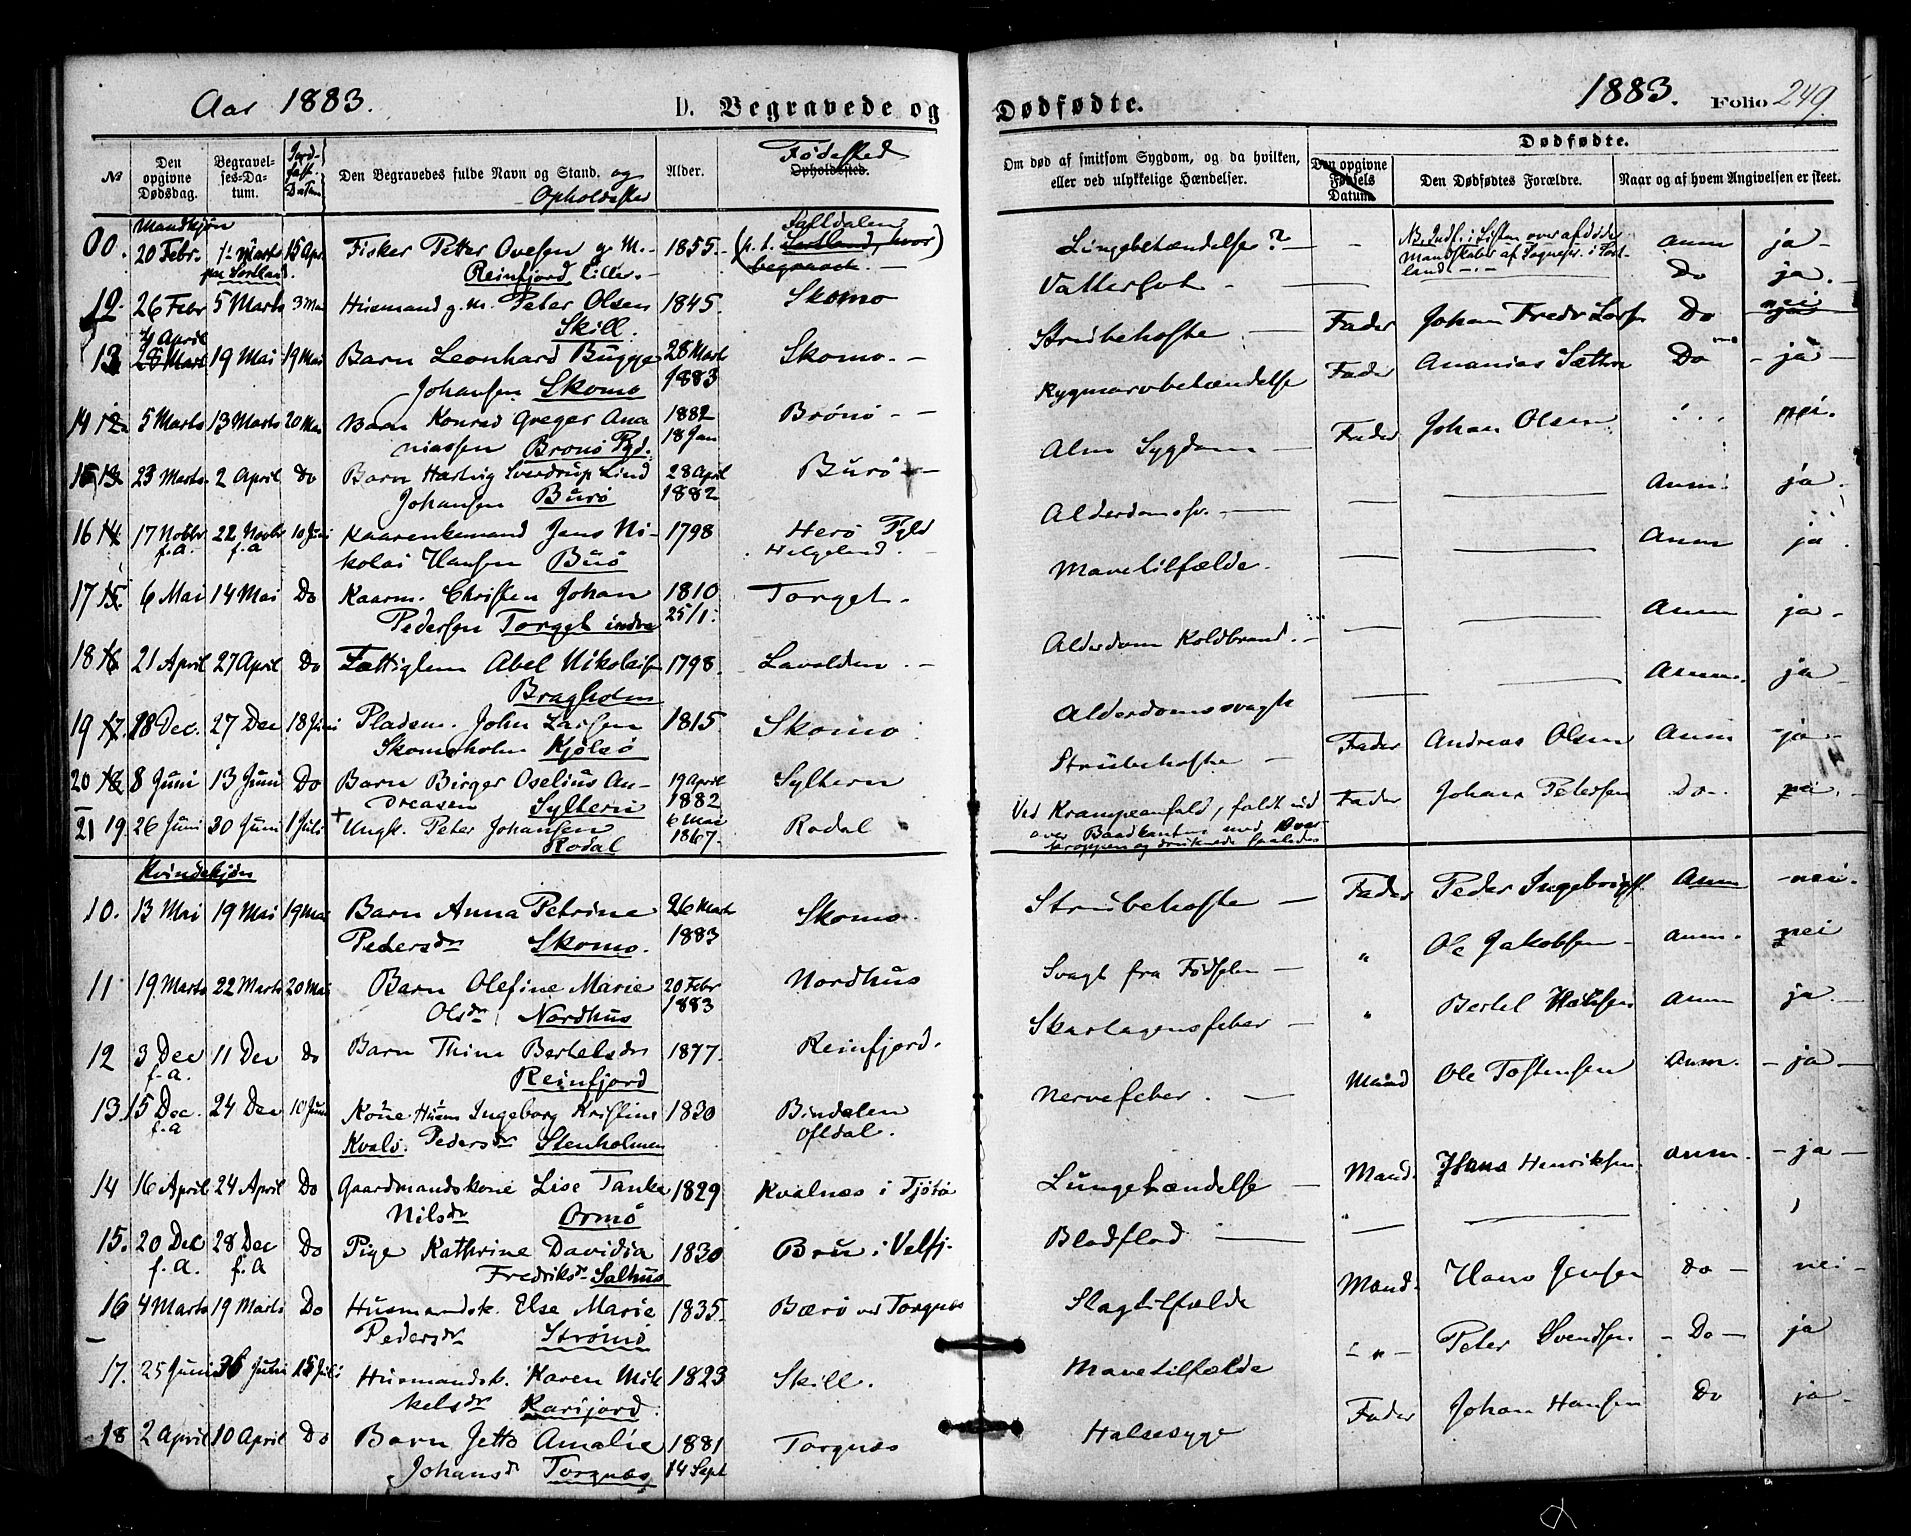 Aar 1883.
D. Begravede og
No
Den opgivne Dødsdag.
Begravelses-Datum.
Jordfæst. Datum
Den Begravedes fulde Navn og Stand. og Opholdssted
Alder.
Fødested
Opholdssted.
Mandkjøn
00. 20 Febr. 15 Apr Fisker Peter Ovesen g. M. 1855. Saltdalen
Reinfjord
12. 26 Febr 5 Marts 3 Mai Husmand g. m. Peter Olsen 1845. Skomo
Skill.
4 April
13 28 Mart 19 Mai 19 Mai Barn Leonhard Bugge 28 Marts Skomo. -
Johansen Skomo 1883
14 12 5 Marts 13 Marts 20 Mai Barn Konrad Greger Ana 1882 Brønø - -
niassen Brønø Pgd. 18 Jan
15 13 23 Marts. 2 April Do Barn Hartvig Sverdrup Lind 28 April Burø -
Johansen Burø 1882
16 14 17 Novbr 22 Novbr 10 Juni Kaarenkemand Jens Ni- 1798 Herø
f.a. f.a kolai Hansen Burø Helgeland.
17 15. 6 Mai 14 Mai Do Kaarm. Christen Johan 1810 Torget.
Pedersen Torget indre 25/1
18 16 21 April 27 April Do Fattiglem Abel Nikolaisen 1798. Lavolden. -
Bragholm
19 17. 18 Dec. 27 Dec 18 Juni Pladsm. John Larsen 1815 Skomo
Skomsholm Kjølsø
20 18 8 Juni 13 Juni Do Barn Birger Oselius An- 19 April Syltern
dreasen Syltern 1882
21 19. 26 Juni 30 Juni 1 Juli + Ungk. Peter Johansen 6 Mai Rodal
Rodal 1867.
Kvindekjøn
10. 13 Mai 19 Mai 19 Mai Barn Anna Petrine 26 Marts Skomo
Pedersdr Skomo. 1883
11 19 Marts 22 Marts 20 Mai Barn Olefine Marie 20 Febr Nordhus
Olsdr Nordhus 1883
12 3 Dec 11 Dec do Barn Thina Bertelsdr 1877 Reinfjord.
f.a. Reinfjord
13. 15 Dec. 24 Dec 10 Juni Kone Husm Ingeborg Kristine 1830 Bindalen
f.a Kvalø. Pedersdr Stenholmen
14 16 April 24 April Do Gaardmandskone Lise Tanke 1829 Kvalnæs i Tjøtø
Nilsdr Ormø
15. 20 Dec 28 Dec Do Pige Kathrine Davidia 1830 Brue i Velfj.
f.a. f.a Fredriksdr Salhus
16 4 Marts 19 Marts Do Husmandsk. Else Marie 1835. Bærø ved Torgnæs
Pedersdr Strømø
17. 25 Juni Juli 15 Juli Husmandsk. Karen Mik 1823 Skill.
kelsdr Karijord.
18 2 April 10 April Do Barn Jetta Amalie 1881 Torgnæs
Johansd Torgnæs 14 Sept
1883. Folio 249.
Dødfødte.
Om død af smitsom Sygdom, og da hvilken, eller ved ulykkelige Hændelser.
Dødfødte.
Den opgivne Fødsels Datum.
Den Dødfødtes Forældre.
Naar og af hvem Angivelsen er skeet.
Lungebetændelse? - - anm ja -
Vattersot - Do ja.
Strubehoste - Fader Johan Fredr Lars Do nei
Rygmarvbetændelse Fader Ananias Sæthre Do - ja -
Alm Sygdom - Fader Johan Olsen nei.
Alderdomssv. - Anm. ja.
Mavetilfælde. Anm ja
Alderdom Koldbrand. - Anm ja -
Alderdomssvagh Anm. ja
Strubehoste - Fader Andreas Olsen Anm - ja -
Ved Krampeanfald, faldt ud Fader Johan Petersen Do. nei. -
over Baadkanten med Over-
kroppen og druknede saaledes
Strubehoste - Fader Peder Ingebrigts. Anm - nei.
Svagt fra Fødselen - " Ole Jakobsen - anm. nei
Skarlagensfeber - " Bertel Hansen anm ja -
Nervefeber. - Mand Ole Tostensen Anm. - ja -
Lungebændelse - Mand. Hans Henriksen. anm. - ja -
Blodflod - "
Slagtilfælde Mand. Hans Jensen do - nei -
Mavetilfælde - " - Peter Svendsen. - Do - ja
Halsesyge Fader Johan Hansen Do ja -